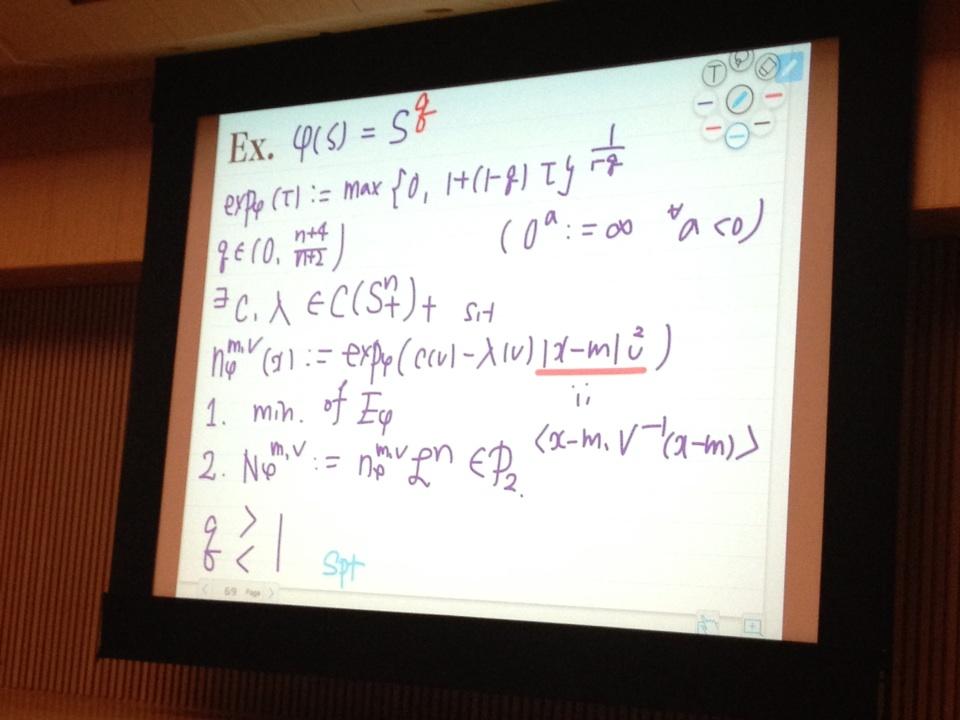 T
Ex. φ(s) = s^q
exp_φ(τ) := max {0, 1+(1-q) τ}^{\frac{1}{1-q}}
q ∈ (0, \frac{n+4}{n+2}) (0^a := ∞ ∀a < 0)
∃ C, λ ∈ C(S^n_+)_+ s.t
n_φ^{m,V}(x) := exp_φ(c(v) - λ(v) |x-m|_v^2)
1. min. of E_φ
ii
<x-m, V^{-1}(x-m)>
2. N_φ^{m,V} := n_φ^{m,V} ℒ^n ∈ P_2.
q >< 1
spt
6/9 Page